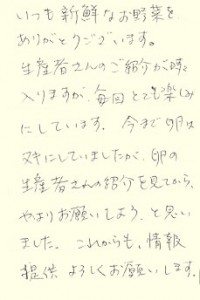 いつも新鮮なお野菜を
ありがとうございます。
生産者さんのご紹介が時々
入りますが、毎回とても楽しみ
にしています。今まで卵は
ヌキにしていましたが、卵の
生産者さんの紹介を見てから、
やはりお願いしよう、と思い
ました。これからも、情報
提供よろしくお願いします。